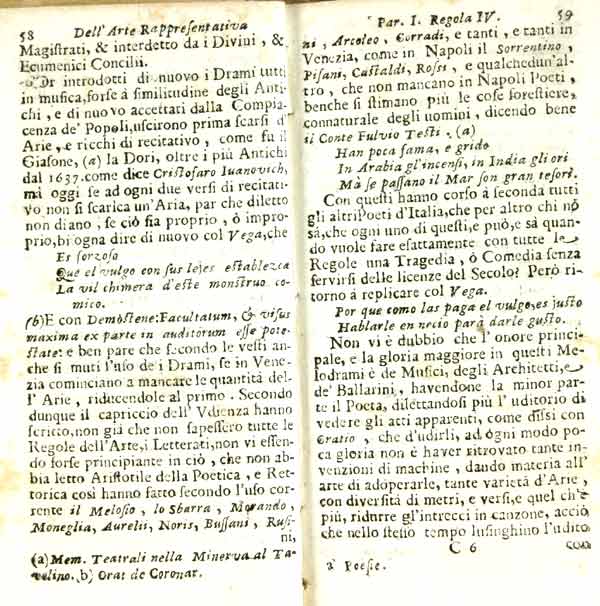 58 Dell'Arte Rappresentativa
Magistrati, & interdetto da i Divini, &
Ecumenici Concilii.
Or introdotti di nuovo i Drami tutti
in musica, forse à similitudine degli Anti-
chi, e di nuovo accettati dalla Compia-
cenza de' Popoli, uscirono prima scarsi d'
Arie, e ricchi di recitativo, come fu il
Giasone, (a) la Dori, oltre i più Antichi
dal 1637. come dice Cristofaro Ivanovich,
mà oggi se ad ogni due versi di recitati-
vo non si scarica un'Aria, par che diletto
non diano, se ciò sia proprio, ò impro-
prio, bisogna dire di nuovo col Vega, che
Es forzoso
Que el vulgo con sus leies establezca
La vil chimera d'este monstruo co-
mico.
(b) E con Demostene: Facultatum, & visus
maxima ex parte in auditorum esse pote-
state: e ben pare che secondo le vesti an-
che si muti l'uso de i Drami, se in Vene-
zia cominciano a mancare le quantità del-
l' Arie, riducendole al primo. Secondo
dunque il capriccio dell' Vdienza hanno
scritto, non già che non sapessero tutte le
Regole dell'Arte, i Letterati, non vi essen-
do forse principiante in ciò, che non ab-
bia letto Aristotile della Poetica, e Ret-
torica così hanno fatto secondo l'uso cor-
rente il Melosio, lo Sbarra, Morando,
Moneglia, Aurelii, Noris, Bussani, Rusi-
ni,
(a) Mem. Teatrali nella Minerva al Ta-
velino. (b) Orat de Coronat.
Par. I. Regola IV. 59
ni, Arcoleo, Corradi, e tanti, e tanti in
Venezia, come in Napoli il Sorrentino,
Pisani, Castaldi, Rossi, e qualchedun'al-
tro, che non mancano in Napoli Poeti,
benche si stimano più le cose forestiere,
connaturale degli uomini, dicendo bene
il Conte Fulvio Testi. (a)
Han poca fama, e grido
In Arabia gl'incensi, in India gli ori
Ma se passano il Mar son gran tesori.
Con questi hanno corso à seconda tutti
gli altri Poeti d'Italia, che per altro chi nō
sà, che ogni uno di questi, e può, e sà quan-
do vuole fare esattamente con tutte le
Regole una Tragedia, ò Comedia senza
servirsi delle licenze del Secolo? Però ri-
torno à replicare col Vega.
Por que como las paga el vulgo, es justo
Hablarle en necio parà darle gusto.
Non vi è dubbio che l' onore princi-
pale, e la gloria maggiore in questi Me-
lodrami è de Musici, degli Architetti, e
de' Ballarini, havendone la minor par-
te il Poeta, dilettandosi più l' uditorio di
vedere gli atti apparenti, come dissi con
Oratio, che d'udirli, ad ogni modo po-
ca gloria non è haver ritrovato tante in-
venzioni di machine, dando materia all'
arte di adoperarle, tante varietà d'Arie,
con diversità di metri, e versi, e quel ch'è
più, ridurre gl'intrecci in canzone, acciò
che nello stesso tempo lusinghino l'udito
C 6 con
a Poesie.